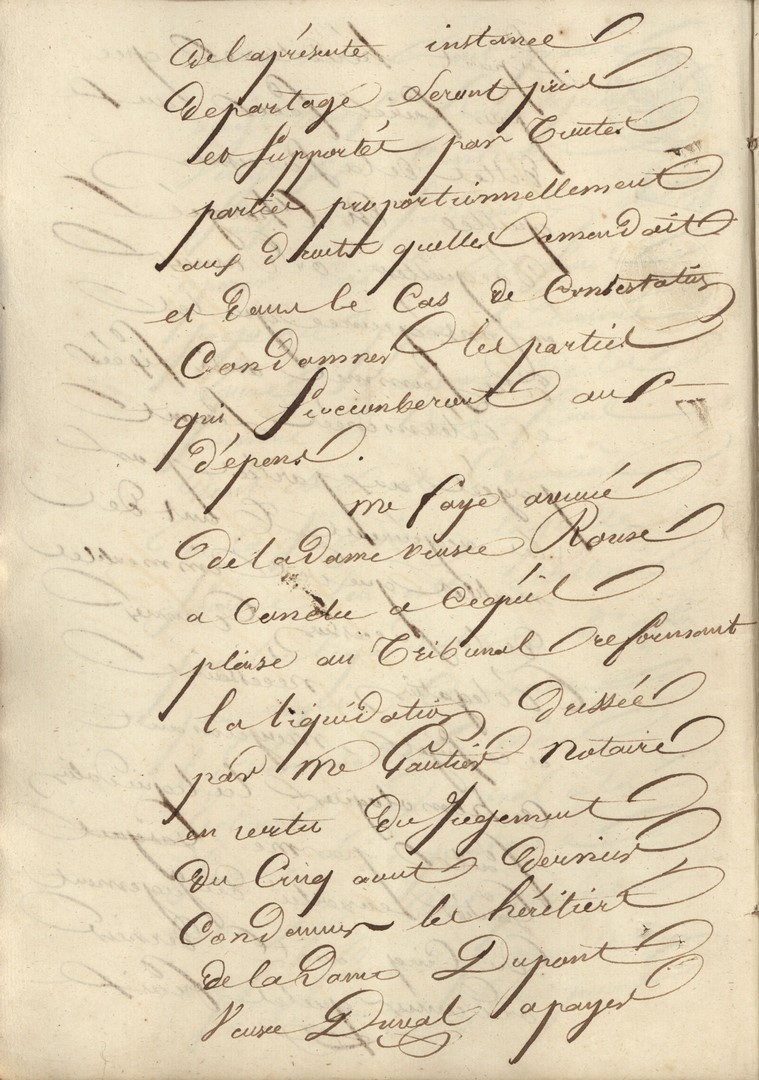 de la présente instance
de partage seront pris
et supportés par toutes
parties proportionnellement
aux droits quelles amendait
et dans le cas de contestation
condamner les parties
qui sioccunberont au
dépens.
me faye avoué
de la dame veuve Rouse
a conclu a cequil
plaise au Tribunal reformant
la liquidation dressée
par me Gautier notaire
en vertu du jugement
du cinq aout dernier
condamner les héritiers
de la Dame Dupont
veuve Duval a payer